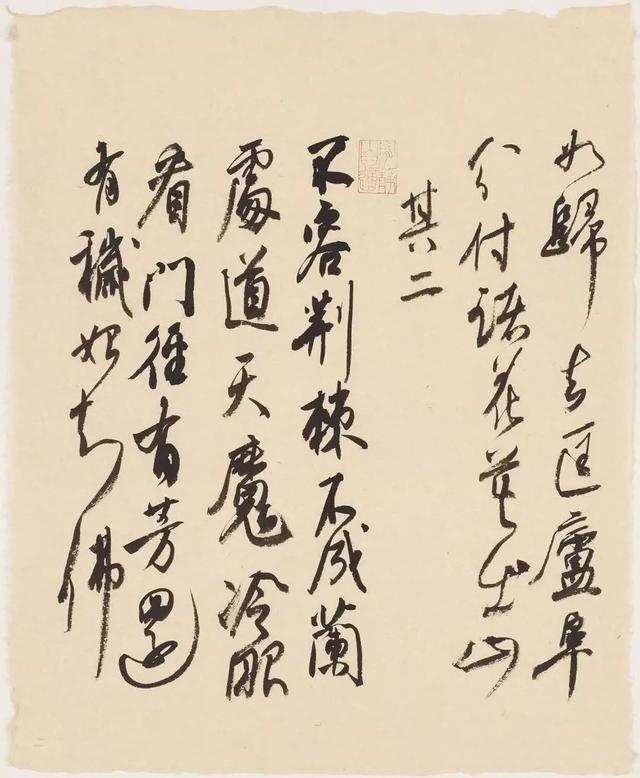 如歸去匡廬阜
分付諸花莫出山
其二
不容荆棘不成蘭
處道天魔冷眼
看門徑有芳還
有穢始知佛